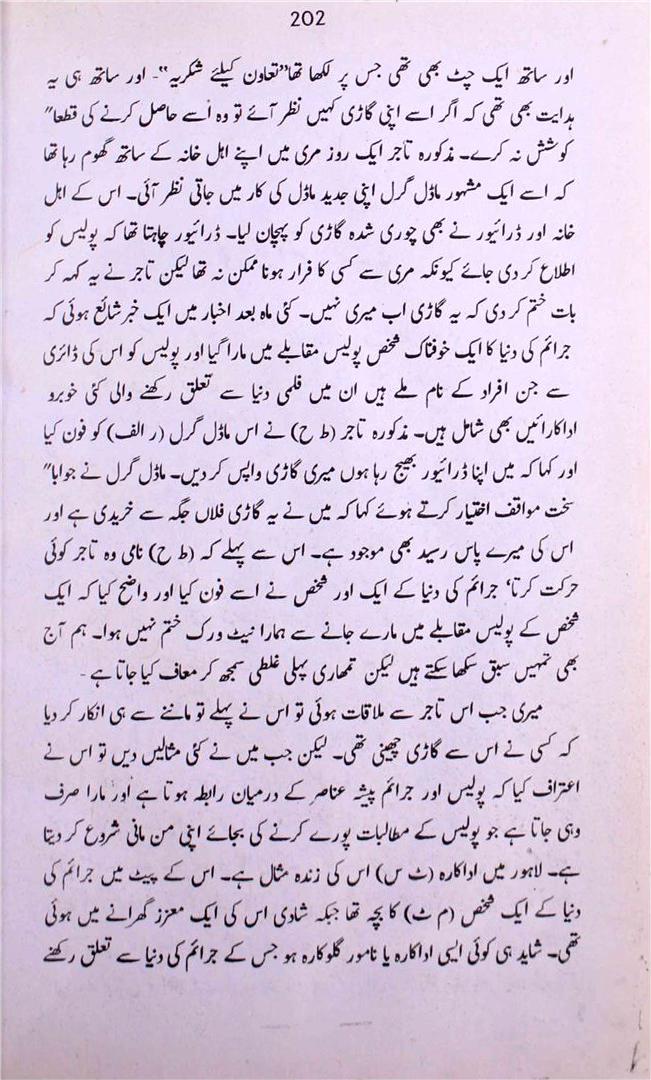 202
اور ساتھ ایک چٹ بھی تھی جس پر لکھا تھا "تعاون کیلئے شکریہ"- اور ساتھ ہی یہ
ہدایت بھی تھی کہ اگر اسے اپنی گاڑی کہیں نظر آئے تو وہ اسے حاصل کرنے کی قطعا"
کوشش نہ کرے۔ مذکورہ تاجر ایک روز مری میں اپنے اہل خانہ کے ساتھ گھوم رہا تھا
کہ اسے ایک مشہور ماڈل گرل اپنی جدید ماڈل کی کار میں جاتی نظر آئی۔ اس کے اہل
خانہ اور ڈرائیور نے بھی چوری شدہ گاڑی کو پہچان لیا۔ ڈرائیور چاہتا تھا کہ پولیس کو
اطلاع کر دی جائے کیونکہ مری سے کسی کا فرار ہونا ممکن نہ تھا لیکن تاجر نے یہ کہہ کر
بات ختم کر دی کہ یہ گاڑی اب میری نہیں۔ کئی ماہ بعد اخبار میں ایک خبر شائع ہوئی کہ
جرائم کی دنیا کا ایک خوفناک شخص پولیس مقابلے میں مارا گیا اور پولیس کو اس کی ڈائری
سے جن افراد کے نام ملے ہیں ان میں فلمی دنیا سے تعلق رکھنے والی کئی خوبرو
اداکارائیں بھی شامل ہیں۔ مذکورہ تاجر (ط ح) نے اس ماڈل گرل (ر الف) کو فون کیا
اور کہا کہ میں اپنا ڈرائیور بھیج رہا ہوں میری گاڑی واپس کر دیں۔ ماڈل گرل نے جوابا"
سخت مواقف اختیار کرتے ہوئے کہا کہ میں نے یہ گاڑی فلاں جگہ سے خریدی ہے اور
اس کی میرے پاس رسید بھی موجود ہے۔ اس سے پہلے کہ (ط ح) نامی وہ تاجر کوئی
حرکت کرتا' جرائم کی دنیا کے ایک اور شخص نے اسے فون کیا اور واضح کیا کہ ایک
شخص کے پولیس مقابلے میں مارے جانے سے ہمارا نیٹ ورک ختم نہیں ہوا۔ ہم آج
بھی تمہیں سبق سکھا سکتے ہیں لیکن تمھاری پہلی غلطی سمجھ کر معاف کیا جاتا ہے -
میری جب اس تاجر سے ملاقات ہوئی تو اس نے پہلے تو ماننے سے ہی انکار کر دیا
کہ کسی نے اس سے گاڑی چھینی تھی۔ لیکن جب میں نے کئی مثالیں دیں تو اس نے
اعتراف کیا کہ پولیس اور جرائم پیشہ عناصر کے درمیان رابطہ ہوتا ہے اور مارا صرف
وہی جاتا ہے جو پولیس کے مطالبات پورے کرنے کی بجائے اپنی من مانی شروع کر دیتا
ہے۔ لاہور میں اداکارہ (ٹ س) اس کی زندہ مثال ہے۔ اس کے پیٹ میں جرائم کی
دنیا کے ایک شخص (م ٹ) کا بچہ تھا جبکہ شادی اس کی ایک معزز گھرانے میں ہوئی
تھی۔ شاید ہی کوئی ایسی اداکارہ یا نامور گلوکارہ ہو جس کے جرائم کی دنیا سے تعلق رکھنے